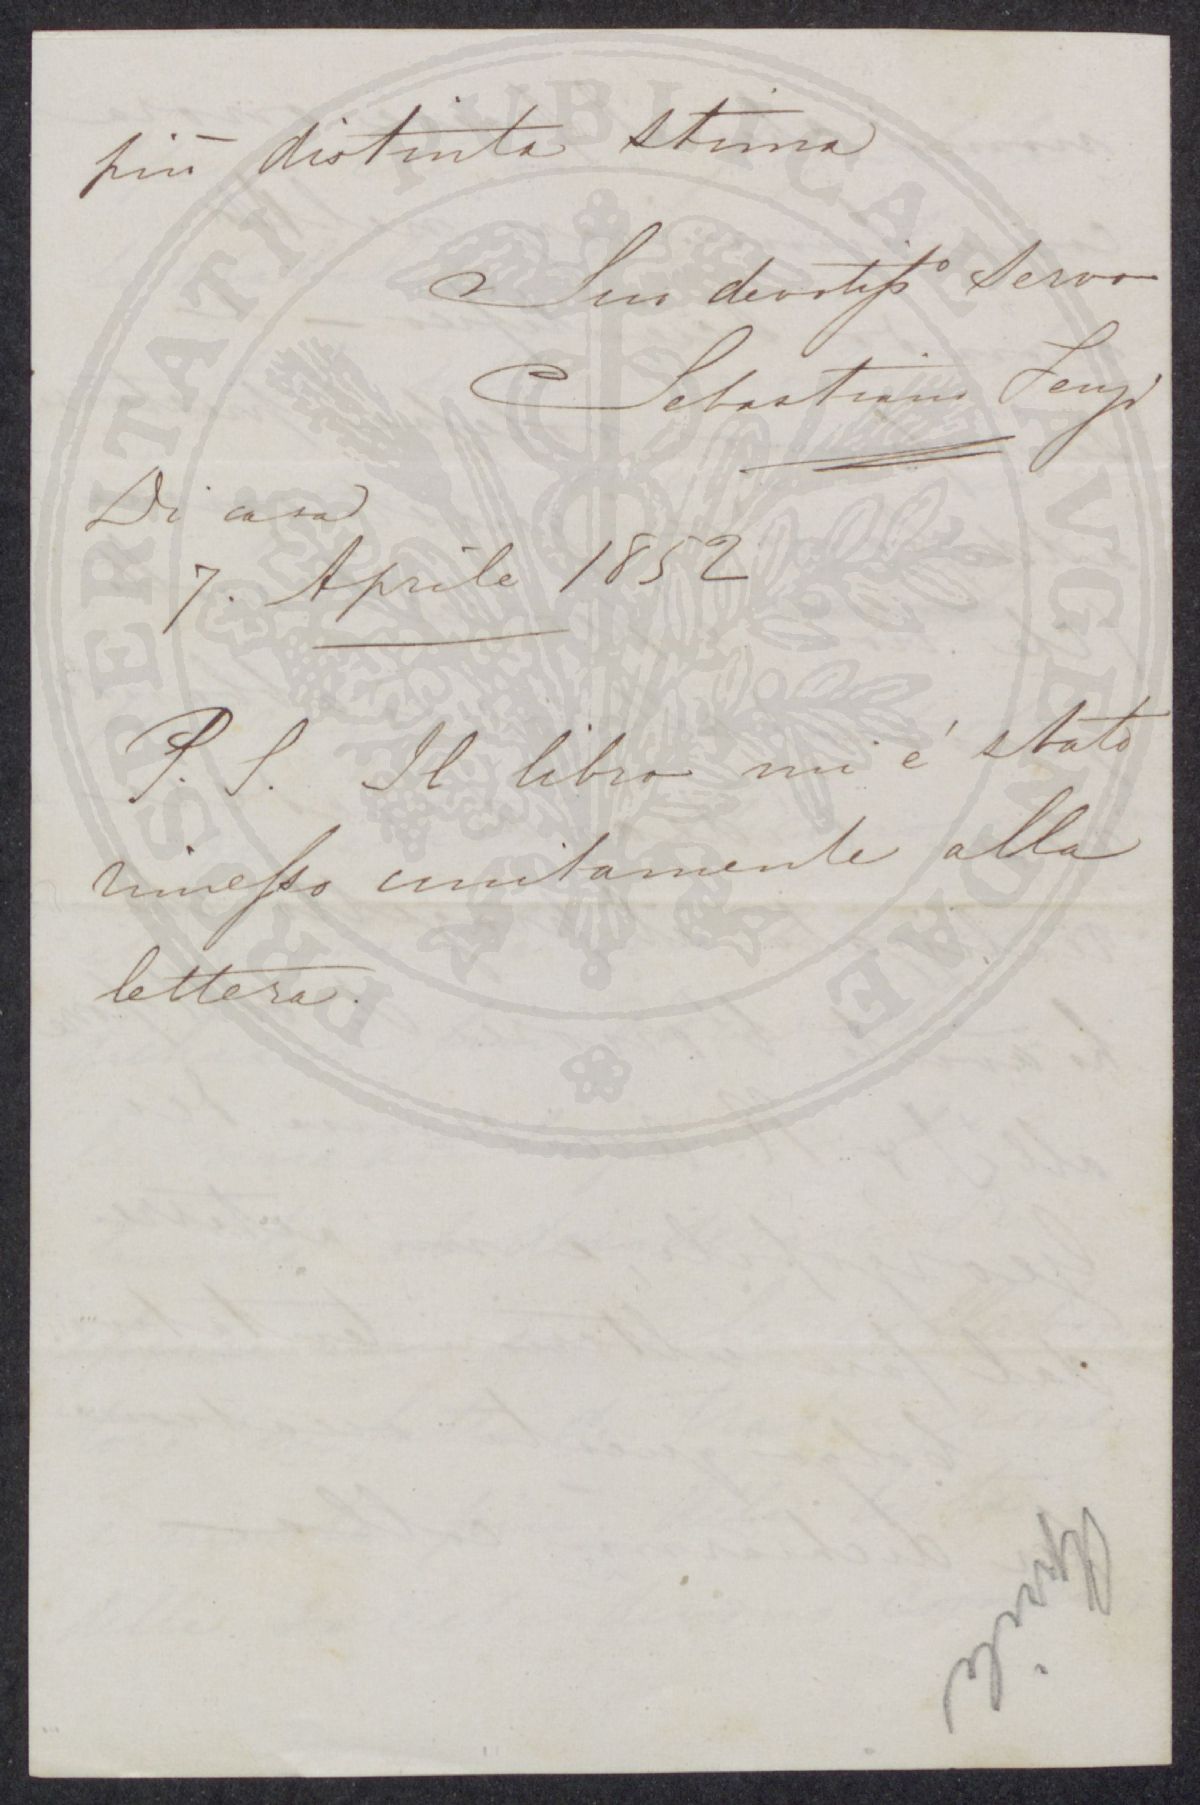 più distinta stima
Suo devotisso servo
Sebastiano Fenzi
Di casa
7. Aprile 1852
P. S. Il libro mi é stato
rimesso unitamente alla
lettera.
Aprile
PROSPERITATI PUBLICAE AVGENDAE